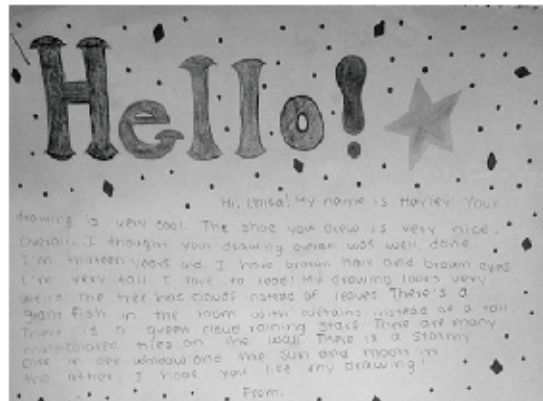 Hello!
Hi, Chisa! My name is Hayley! Your
drawing is very cool. The shoe you drew is very nice.
Overall, I thought your drawing overall was well done.
I'm thirteen years old. I have brown hair and brown eyes.
I'm very tall. I love to read! My drawing looks very
weird. The tree has clouds instead of leaves. There's a
giant fish in the room with curtains instead of a tail.
There is a green cloud raining stars. There are many
multicolored tiles on the wall. There is a stormy
in one window and the sun and moon in
the other. I hope you like my drawing!
From,